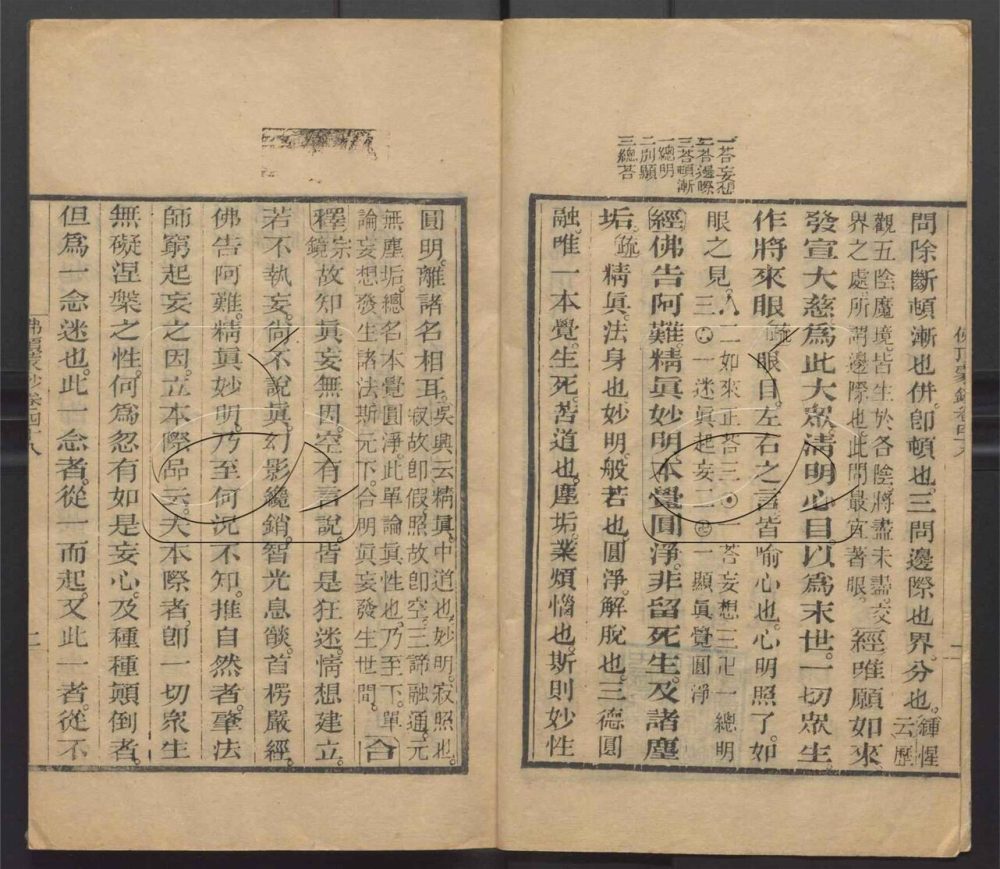 一荅妄想
二荅邊際
三荅頓漸
一總明
二別顯
三總荅
問除斷頓漸也。併卽頓也。三問邊際也。界分也。鍾惺云歷
觀五陰魔境。皆生於各陰將盡未盡交
界之處。所謂邊際也。此問最宜著眼。經唯願如來
發宣大慈。爲此大眾清明心目。以爲末世。一切眾生。
作將來眼。疏眼目。左右之言。皆喻心也。心明照了。如
眼之見。二如來正荅三 一荅妄想三 一總明
三 一迷眞起妄二 一顯眞覺圓淨
經佛告阿難。精眞妙明。本覺圓淨。非留死生。及諸塵
垢。疏精眞。法身也。妙明。般若也。圓淨。解脫也。三德圓
融。唯一本覺。生死。苦道也。塵垢。業煩惱也。斯則妙性
圓明。離諸名相耳。吳興云。精眞。中道也。妙明。寂照也。
寂故卽假。照故卽空。三諦融通。元
無塵垢。總名本覺圓淨。此單論眞性也。乃至下。單
論妄想發生。諸法斯元下。合明眞妄發生世間。合
釋宗鏡。故知眞妄無因。空有言說。皆是狂迷。情想建立。
若不執妄。尚不說眞。幻影纔銷。智光息燄。首楞嚴經。
佛告阿難。精眞妙明。乃至何況不知。推自然者。肇法
師窮起妄之因。立本際品云。夫本際者。卽一切眾生
無礙涅槃之性。何爲忽有如是妄心。及種種顚倒者。
但爲一念迷也。此一念者。從一而起。又此一者。從不